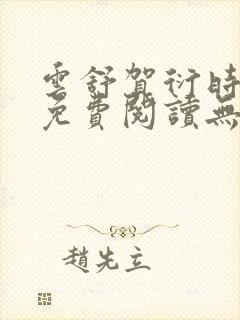 雲舒賀衍時
免費閱讀無
趙先立